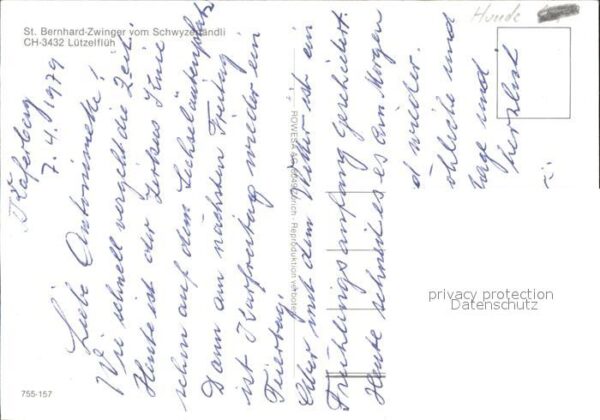 St. Bernhard-Zwinger vom Schwyzerländli
CH-3432 Lützelflüh
Hunde
Käferberg
7. 4. 1979
Liebe Antoinette!
Wie schnell vergeht die Zeit.
Heute ist der Zirkus Knie
schon auf dem Sechseläutenplatz
Dann am nächsten Freitag
ist Karfreitag wieder ein
Feiertag.
Aber mit dem Wetter ist ein
Frühlingsanfang gescheitert.
Heute schneit es am Morgen
d wieder.
öhliche und
tage und
herzlich
ROWESA AG Zürich - Reproduktion verboten
755-157
privacy protection
Datenschutz